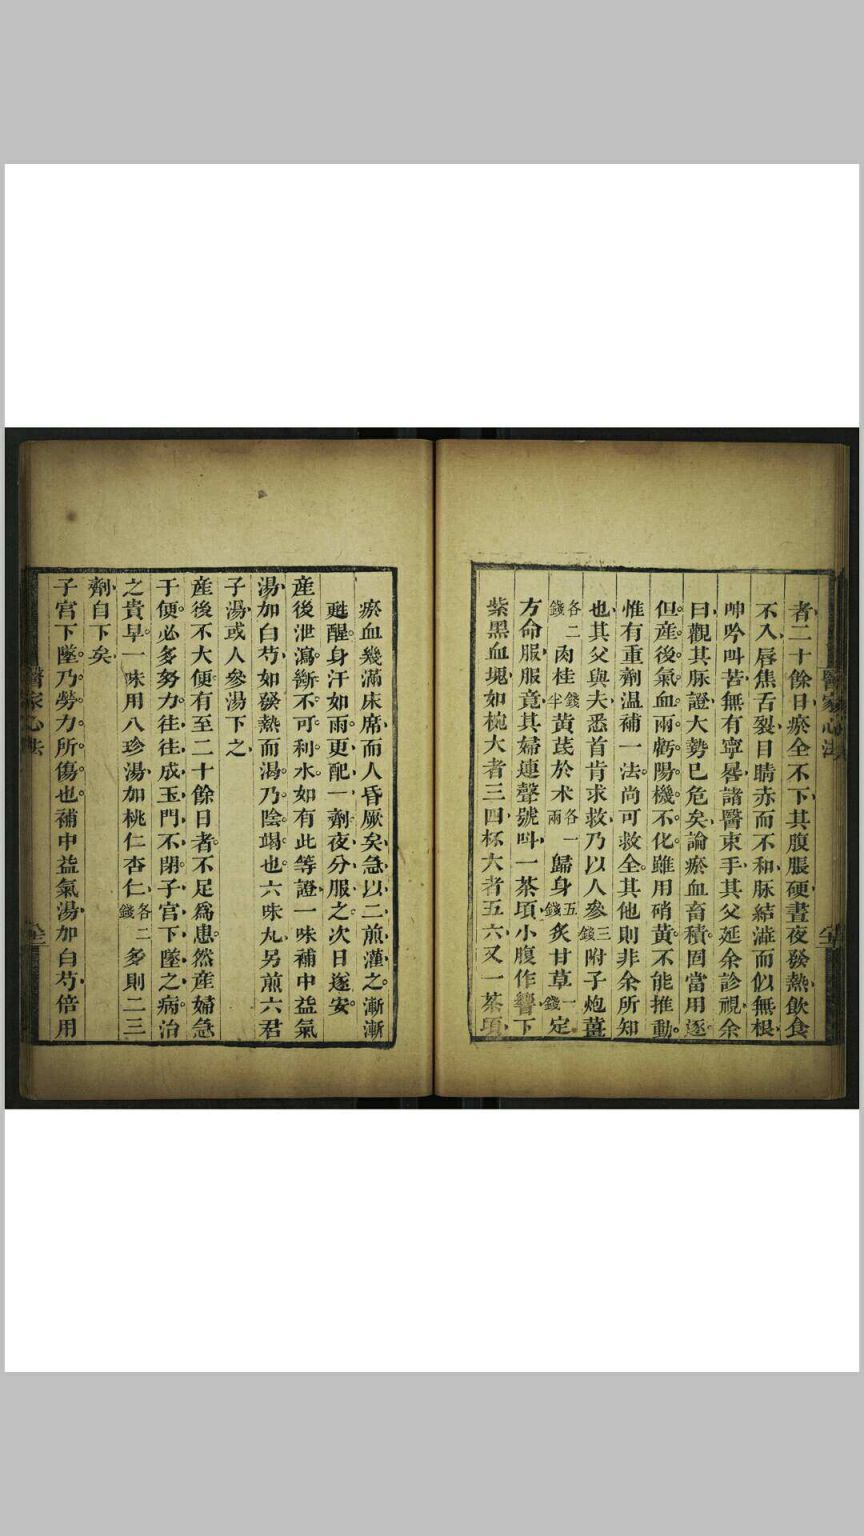 者二十餘日瘀全不下其腹脹硬晝夜發熱飲食
不入唇焦舌裂目睛赤而不和脉結澁而似無根
呻吟叫苦無有寧晷諸醫束手其父延余診視余
曰觀其脉證大勢巳危矣論瘀血畜積固當用逐
但產後氣血兩虧陽機不化雖用硝黃不能推動
惟有重劑温補一法尚可救全其他則非余所知
也其父與夫悉首肯求救乃以人參三錢附子炮薑
各二錢肉桂錢半黃茋於术各一兩歸身五錢炙甘草一錢定
方命服服竟其婦連聲號呌一茶頃小腹作響下
紫黑血塊如椀大者三四杯大者五六又一茶頃
瘀血幾滿床席而人昏厥矣急以二煎灌之漸漸
甦醒身汗如雨更配一劑夜分服之次日遂安
產後泄瀉斷不可利水如有此等證一味補中益氣
湯加白芍如發熱而渴乃陰竭也六味丸另煎六君
子湯或人參湯下之
產後不大便有至二十餘日者不足爲患然產婦急
于便必多努力往往成玉門不閉子宮下墜之病治
之貴早一味用八珍湯加桃仁杏仁各二錢多則二三
劑自下矣
子宮下墜乃勞力所傷也補中益氣湯加白芍倍用
醫家心法